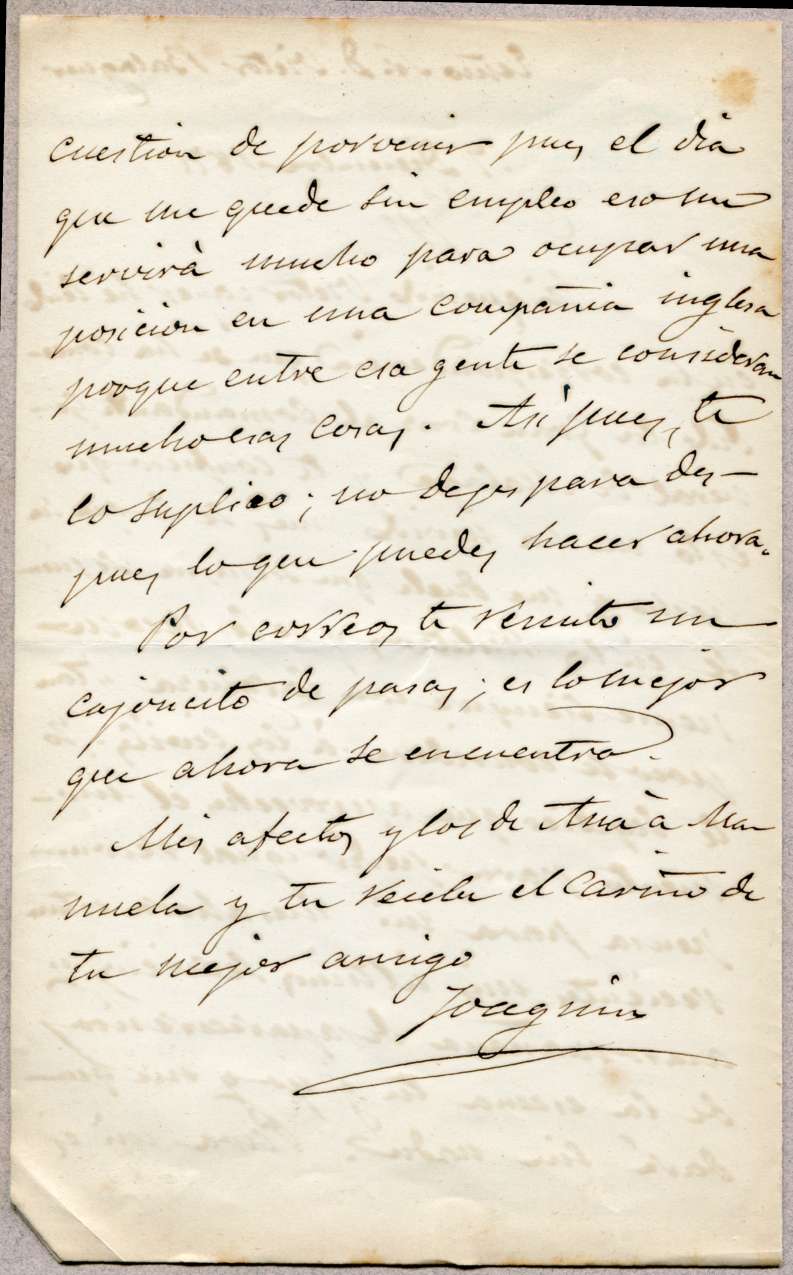 cuestion de porvenir pues el dia
que me quede sin empleo eso me
servirà mucho para ocupar una
posicion en una compañia inglesa
porque entre esa gente se consideran
mucho esas cosas. Asi pues, te
lo suplico; no dejes para des-
pues lo que puedes hacer ahora.
Por correos te remito un
cajoncito de pasas; es lo mejor
que ahora se encuentra.
Mis afectos y los de Ana à Ma-
nuela y tu recibe el cariño de
tu mejor amigo
Joaquin